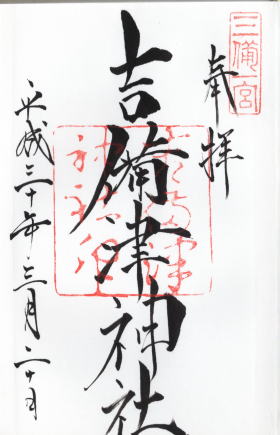 三備一宮
奉拝
吉備津神社
平成三十年三月二十日